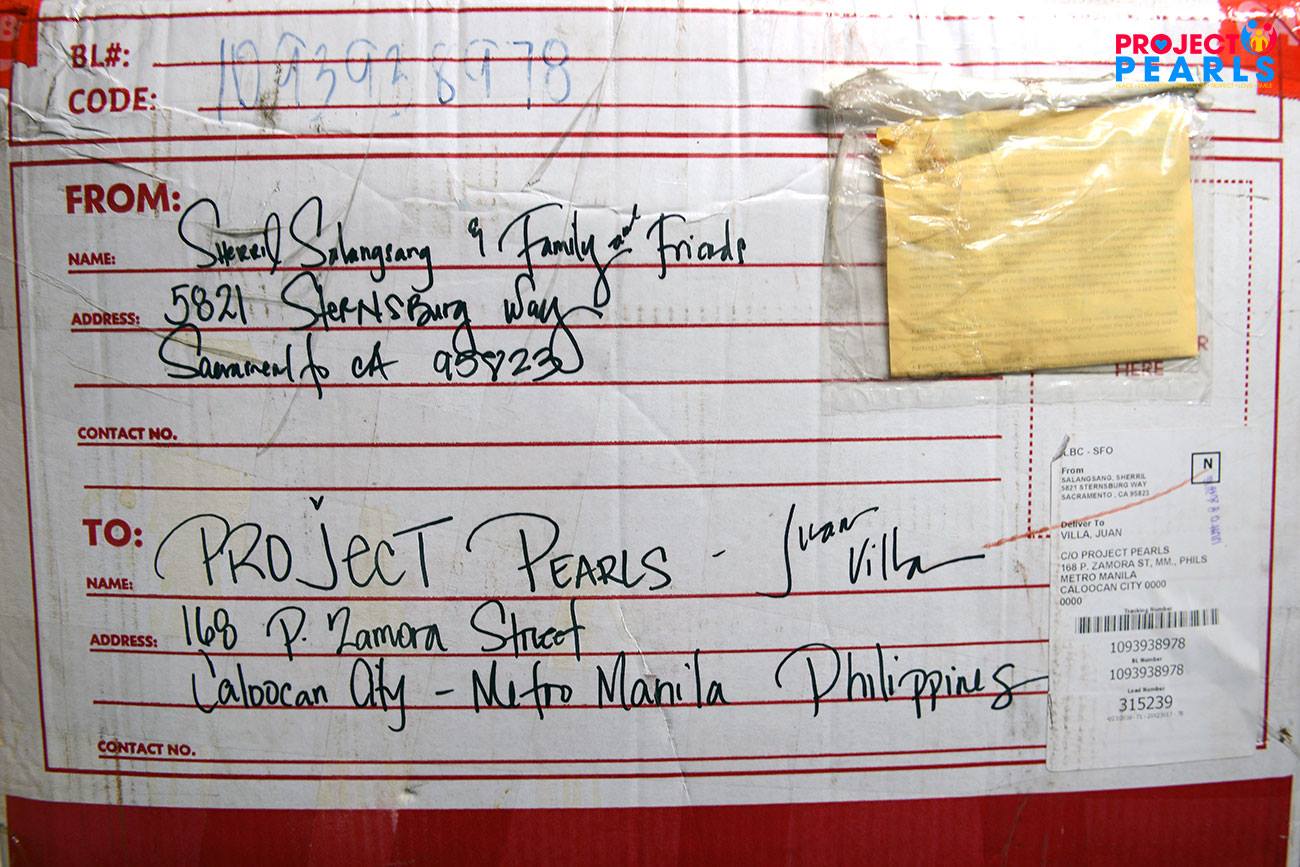 PROJECT
PEARLS
BL#:
CODE:
1093938978
FROM:
NAME: Sherril Salangsang & Family and Friends
ADDRESS: 5821 Sternsburg Way
Sacramento CA 95823
CONTACT NO.
TO:
NAME: PROJECT PEARLS - Juan Villa
ADDRESS: 168 P. Zamora Street
Caloocan City - Metro Manila Philippines
CONTACT NO.
HERE
LBC - SFO
N
From
SALANGSANG, SHERRIL
5821 STERNSBURG WAY
SACRAMENTO , CA 95823
Deliver To
VILLA, JUAN
C/O PROJECT PEARLS
168 P. ZAMORA ST, MM., PHILS
METRO MANILA
CALOOCAN CITY 0000
0000
Tracking Number
1093938978
BL Number
1093938978
Load Number
315239